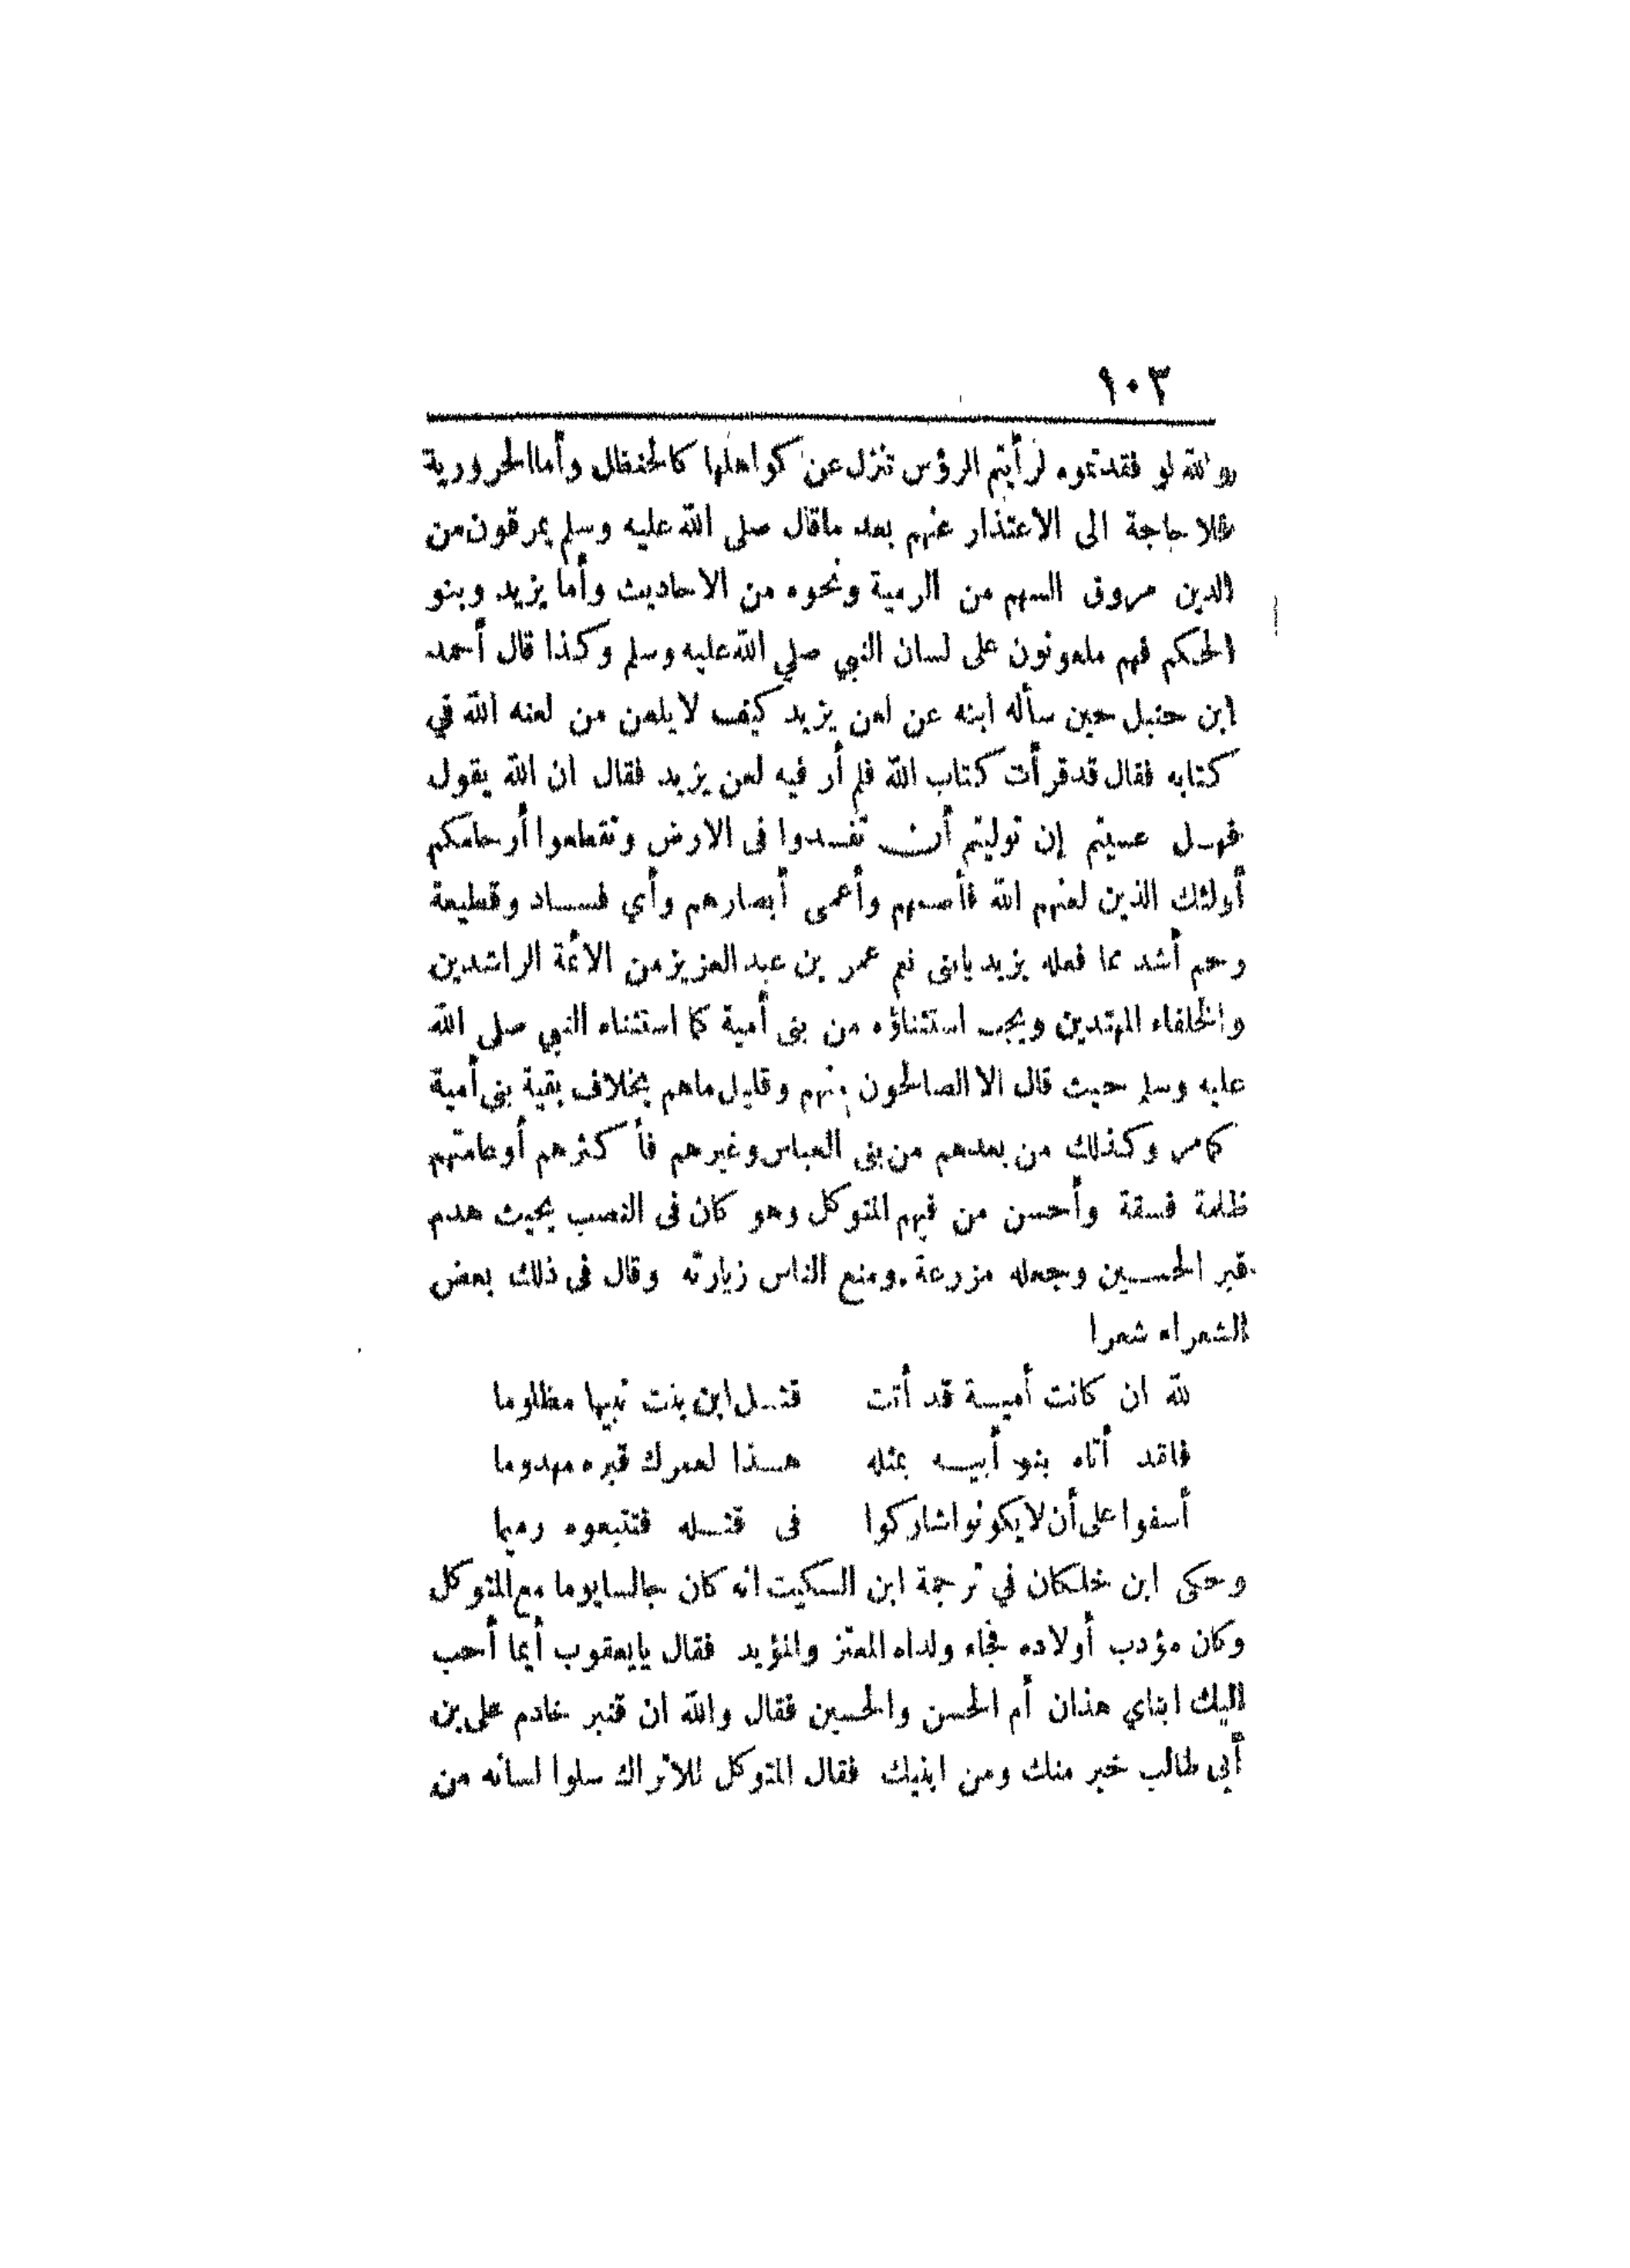 ١٠٣
والله لو فقدتموه لرأيتم الرؤس تنزل عن كواهلها كالحنظل وأما الحرورية
فلا حاجة الى الاعتذار عنهم بعد ماقال صلى الله عليه وسلم يمرقون من
الدين مروق السهم من الرمية ونحوه من الاحاديث وأما يزيد وبنو
الحكم فهم ملعونون على لسان النبي صلي الله عليه وسلم وكذا قال أحمد
ابن حنبل حين سأله ابنه عن لعن يزيد كيف لا يلعن من لعنه الله في
كتابه فقال قد قرأت كتاب الله فلم أر فيه لعن يزيد فقال ان الله يقول
فهل عسيتم إن توليتم أن تفسدوا فى الارض وتقطعوا أرحامكم
أولئك الذين لعنهم الله فأصمهم وأعمى أبصارهم وأي فساد وقطيعة
رحم أشد مما فعله يزيد يابنى نعم عمر بن عبد العزيز من الائمة الراشدين
والخلفاء المهتدين ويجب استثناؤه من بنى أمية كما استثناه النبي صلى الله
عليه وسلم حيث قال الا الصالحون منهم وقليل ماهم بخلاف بقية بنى أمية
كما مر وكذلك من بعدهم من بنى العباس وغيرهم فأكثرهم أو عامتهم
ظلمة فسقة وأحسن من فيهم المتوكل وهو كان فى النصب بحيث هدم
قبر الحسين وجعله مزرعة ومنع الناس زيارته وقال فى ذلك بعض
الشعراء شعرا
لله ان كانت أمية قد أتت قتل ابن بنت نبيها مظلوما
فلقد أتاه بنو أبيه بمثله هذا لعمرك قبره مهدوما
أسفوا على أن لا يكونوا شاركوا فى قتله فتتبعوه رميما
وحكى ابن خلكان في ترجمة ابن السكيت انه كان جالسا يوما مع المتوكل
وكان مؤدب أولاده فجاء ولداه المعتز والمؤيد فقال يا يعقوب أيما أحب
اليك ابناي هذان أم الحسن والحسين فقال والله ان قنبر خادم على بن
أبى طالب خير منك ومن ابنيك فقال المتوكل للاتراك سلوا لسانه من